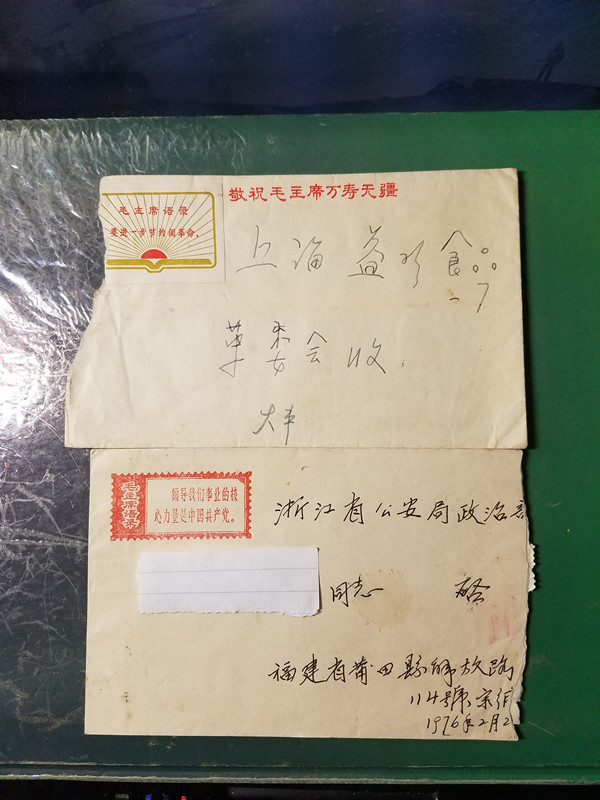 敬祝毛主席万寿无疆
毛主席语录
要进一步节约闹革命。
上海益民食品
一厂
革委会收
大丰
毛主席语录
领导我们事业的核
心力量是中国共产党。
浙江省公安局政治部
同志 启
福建省莆田县解放路
114號宋
1976年2月2